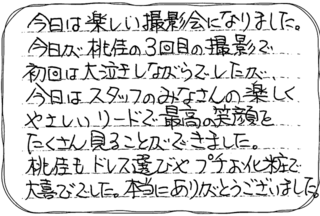 今日は楽しい撮影会になりました。
今日が桃佳の3回目の撮影で
初回は大泣きしながらでしたが、
今日はスタッフのみなさんの楽しく
やさしいリードで最高の笑顔を
たくさん見ることができました。
桃佳もドレス選びやプチお化粧で
大喜びでした。本当にありがとうございました。